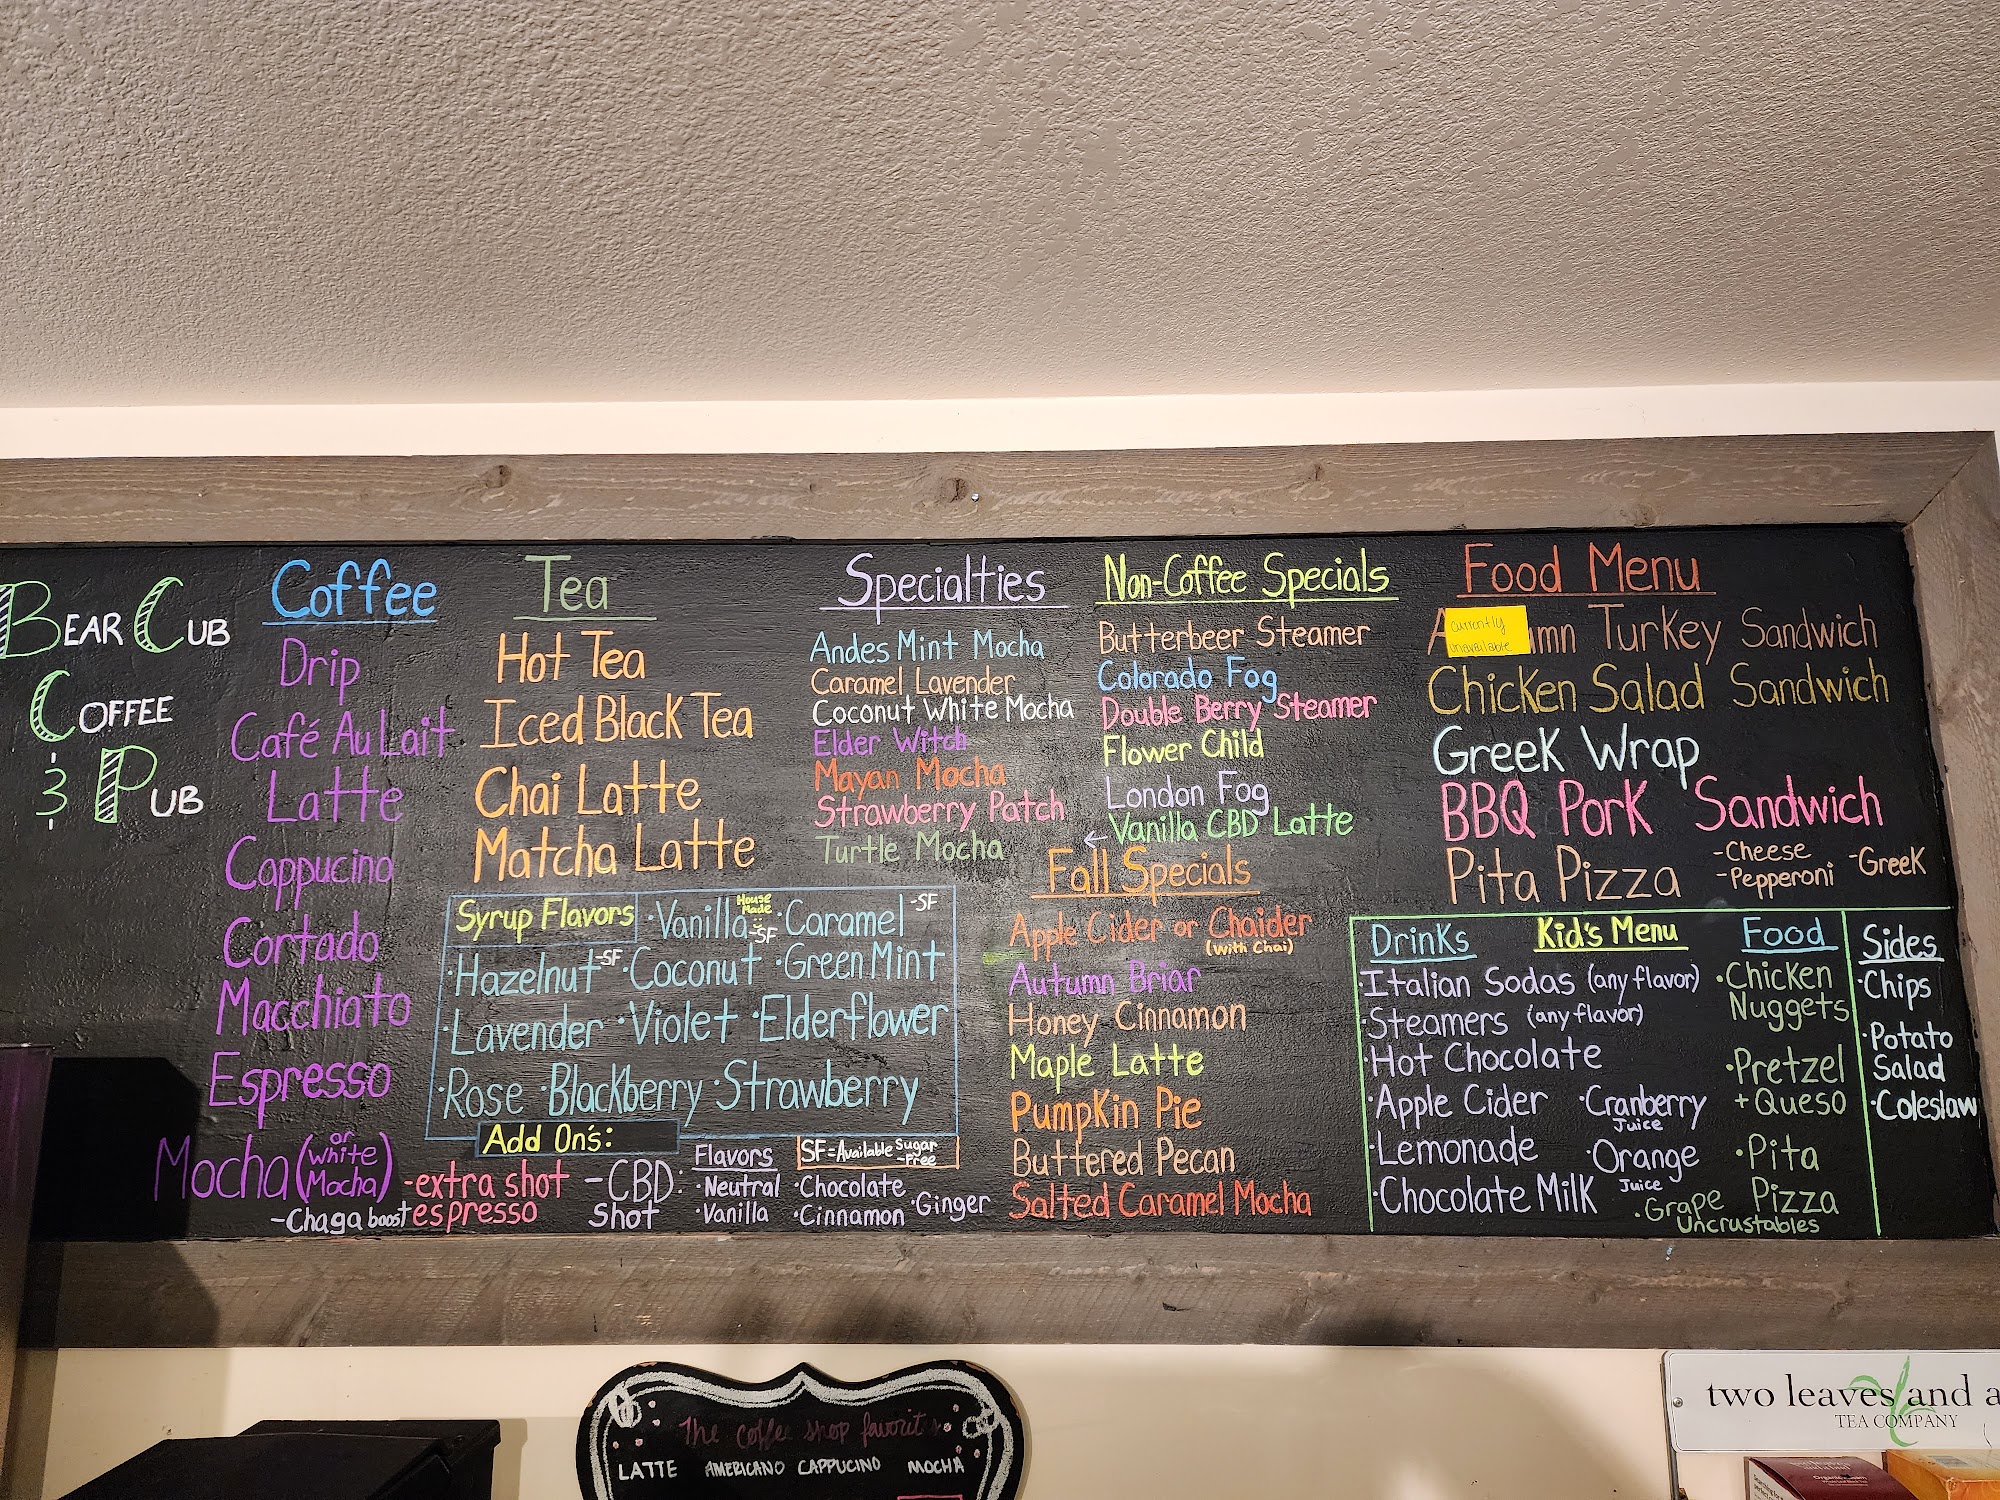 BEAR CUB
COFFEE
& PUB
Coffee
Drip
Café Au Lait
Latte
Cappucino
Cortado
Macchiato
Espresso
Mocha (or White Mocha)
-Chaga boost
Tea
Hot Tea
Iced Black Tea
Chai Latte
Matcha Latte
Syrup Flavors
·Vanilla House Made -SF ·Caramel -SF
·Hazelnut -SF ·Coconut ·Green Mint
·Lavender ·Violet ·Elderflower
·Rose ·Blackberry ·Strawberry
Add On's:
SF=Available Sugar-Free
-extra shot
espresso
-CBD:
Shot
Flavors
·Neutral ·Chocolate
·Vanilla ·Cinnamon ·Ginger
Specialties
Andes Mint Mocha
Caramel Lavender
Coconut White Mocha
Elder Witch
Mayan Mocha
Strawberry Patch
Turtle Mocha
Non-Coffee Specials
Butterbeer Steamer
Colorado Fog
Double Berry Steamer
Flower Child
London Fog
Vanilla CBD Latte
Fall Specials
Apple Cider or Chaider
(with Chai)
Autumn Briar
Honey Cinnamon
Maple Latte
Pumpkin Pie
Buttered Pecan
Salted Caramel Mocha
Food Menu
Turkey Sandwich
currently
unavailable
Chicken Salad Sandwich
Greek Wrap
BBQ Pork Sandwich
Pita Pizza -Cheese -Greek
-Pepperoni
Kid's Menu
Drinks
·Italian Sodas (any flavor)
·Steamers (any flavor)
·Hot Chocolate
·Apple Cider ·Cranberry Juice
·Lemonade ·Orange Juice
·Chocolate Milk
Food
·Chicken
Nuggets
·Pretzel
+ Queso
·Pita
Pizza
·Grape
Uncrustables
Sides
·Chips
·Potato
Salad
·Coleslaw
The coffee shop favorit
LATTE AMERICANO CAPPUCINO MOCHA
two leaves and a
TEA COMPANY